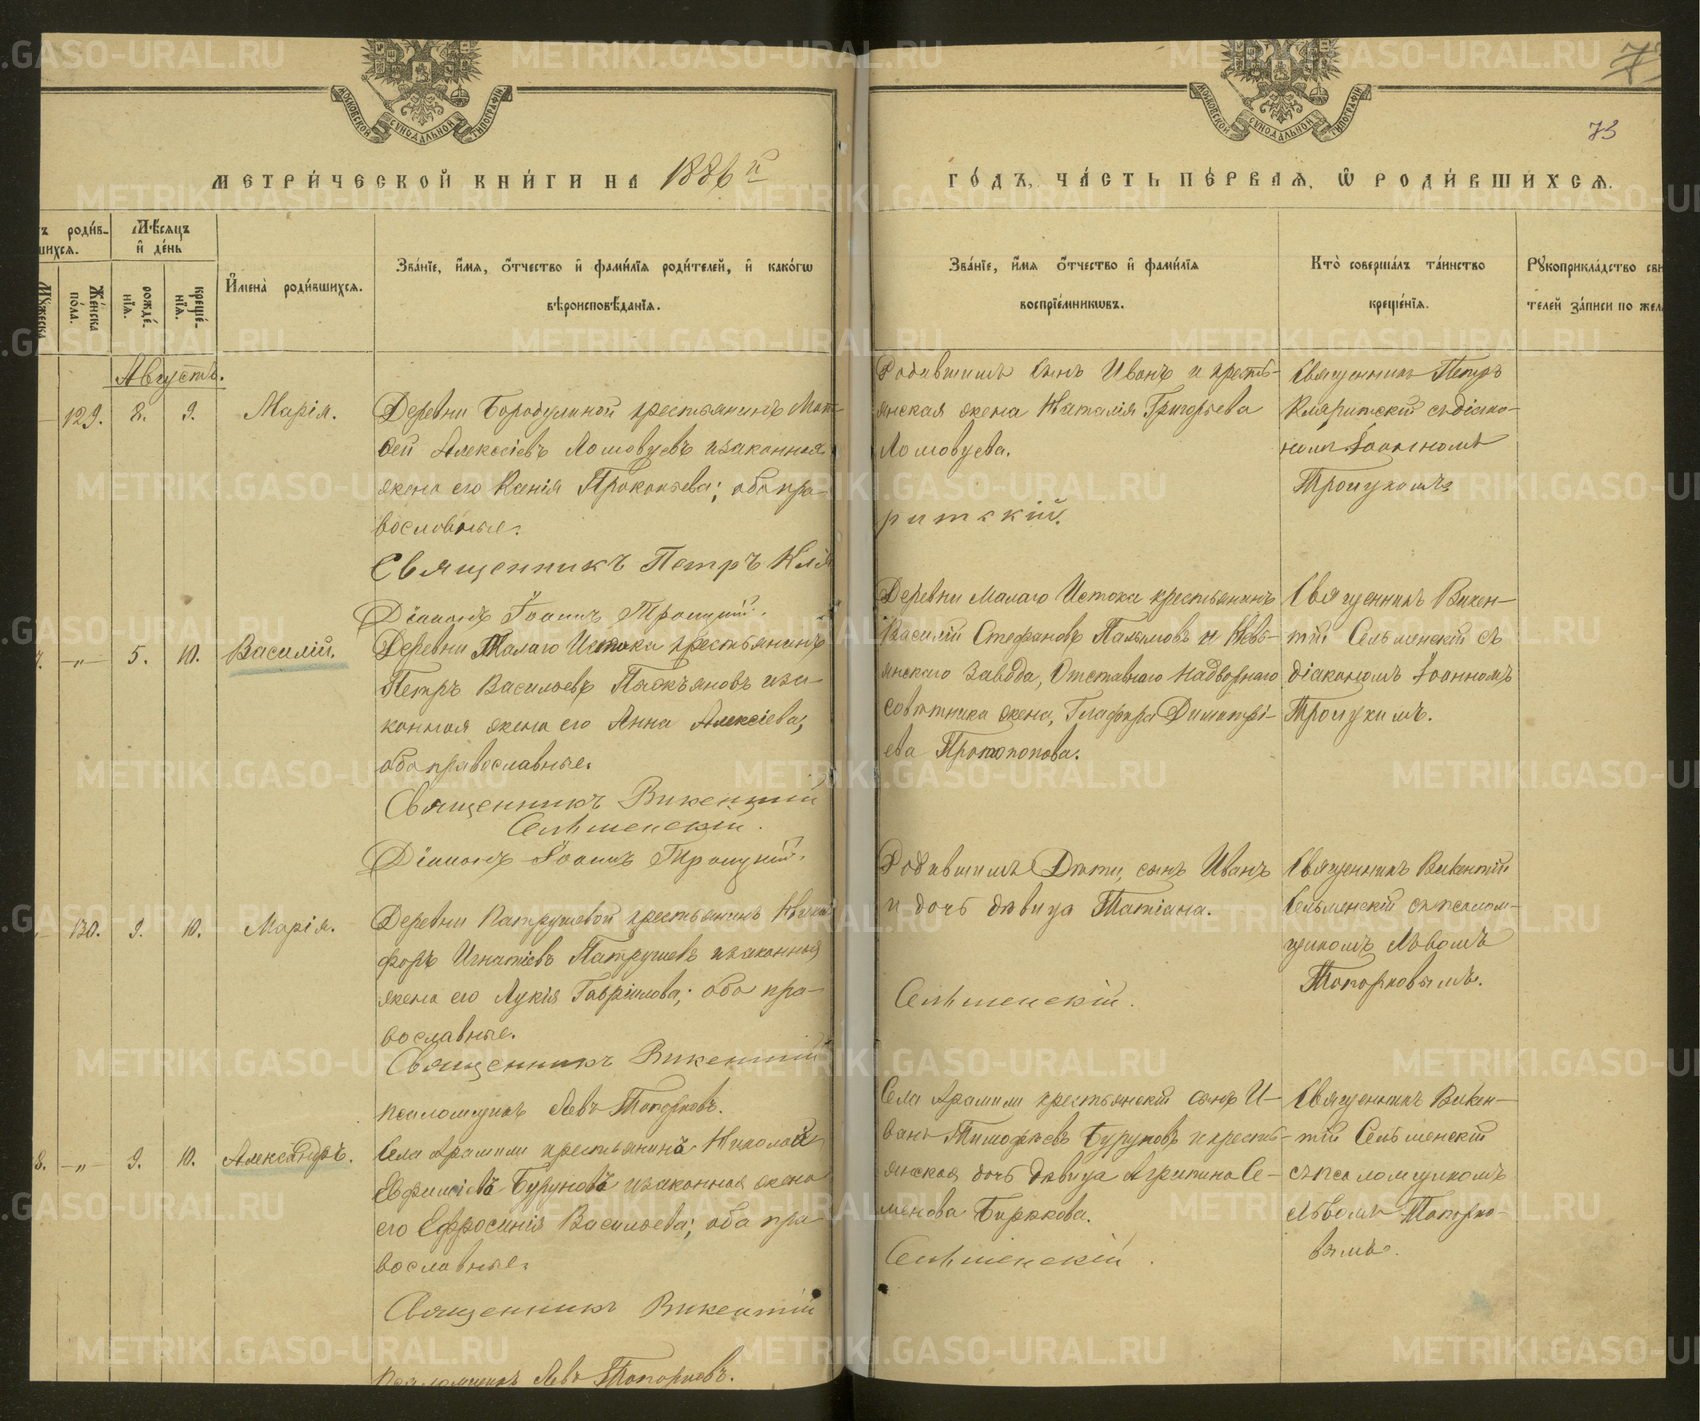 МЕТРИ́ЧЕСКОЙ КНИ́ГИ НА 1886 й
ГО́ДЪ, ЧА́СТЬ ПЕ́РВАЯ, Ѡ РОДИ́ВШИХСЯ.
73
МОСКОВСКОЙ СѴНОДАЛЬНОЙ ТИПОГРАФІИ
МОСКОВСКОЙ СѴНОДАЛЬНОЙ ТИПОГРАФІИ
ъ роди́в-
шихся.
Мѣсяцъ
и҆ де́нь
Му́жеска
Же́нска
по́ла.
рожде́-
нія.
креще́-
нія.
И҆мена̀ роди́вшихся.
Зва́ніе, и҆́мя, о҆́тчество и҆ фами́лія роди́телей, и҆ како́гѡ
вѣроисповѣ́данія.
Зва́ніе, и҆́мя о҆́тчество и҆ фами́лія
воспріе́мникѡвъ.
Кто̀ соверша́лъ та́инство
креще́нія.
Рꙋкоприкла́дство сви
телей за́писи по жела
Августъ.
129. 8. 9. Марія.
Деревни Бородулиной крестьянинъ Мат-
ѳей Алексіевъ Ломовцевъ и законная
жена его Ксенія Прокопьева; оба пра-
вославные.
Священникъ Петръ Кля
Діаконъ Іоаннъ Троицкій.
Родившимъ сынъ Иванъ и кресть-
янская жена Наталія Григорьева
Ломовцева.
ритскій.
Священникъ Петръ
Кляритскій съ діако-
номъ Іоанномъ
Троицкимъ
7. -„- 5. 10. Василій.
Деревни Малаго Истока крестьянинъ
Петръ Васильевъ Паскъяновъ и за-
конная жена его Анна Алексіева;
оба православные.
Священникъ Викентій
Сельменскій.
Діаконъ Іоаннъ Троицкій.
Деревни Малаго Истока крестьянинъ
Василій Стефановъ и Невь-
янскаго Завода, Отставнаго Надворнаго
совѣтника жена, Глафира Димитрі-
ева Протопопова.
Священникъ Викен-
тій Сельменскій съ
діакономъ Іоанномъ
Троицкимъ.
130. 9. 10. Марія.
Деревни Патрушевой крестьянинъ Ники-
форъ Игнатіевъ Патрушевъ и законная
жена его Лукія Гавріилова; оба пра-
вославные.
Священникъ Викентій
псаломщикъ Левъ Топорковъ.
Родившимъ Дѣти, сынъ Иванъ
и дочь дѣвица Татіана.
Сельменскій.
Священникъ Викентій
Сельменскій съ псалом-
щикомъ Львомъ
Топорковымъ.
8. -„- 9. 10. Александръ.
Села Арамили крестьянинъ Николай
Евфиміевъ Буруновъ и законная жена
его Ефросинія Васильева; оба пра-
вославные.
Священникъ Викентій
псаломщикъ Левъ Топорковъ.
Села Арамили крестьянскій сынъ И-
ванъ Тимоѳеевъ Буруновъ и кресть-
янская дочь дѣвица Агрипина Се-
менова Бирюкова.
Сельменскій.
Священникъ Викен-
тій Сельменскій
съ псаломщикомъ
Львомъ Топорко-
вымъ.
METRIKI.GASO-URAL.RU